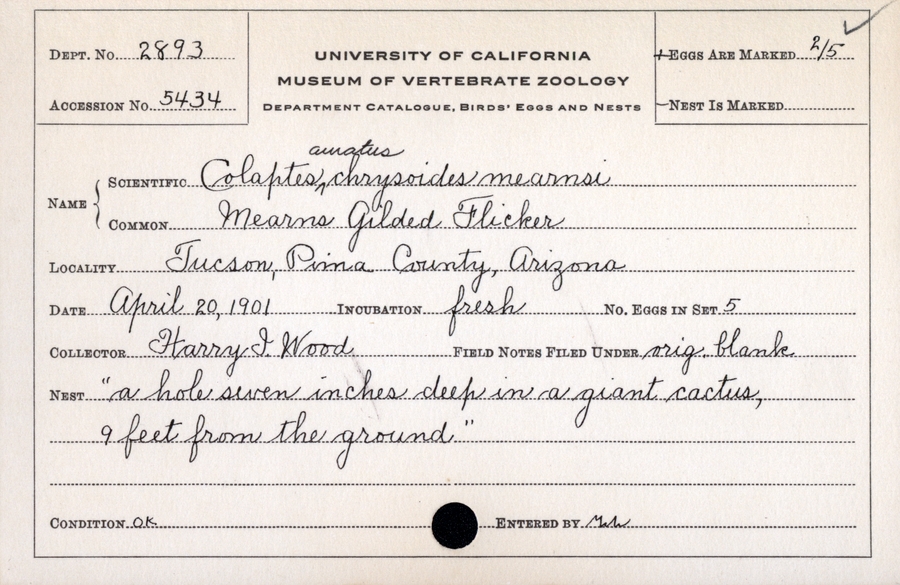 DEPT. NO. 2893
UNIVERSITY OF CALIFORNIA
MUSEUM OF VERTEBRATE ZOOLOGY
DEPARTMENT CATALOGUE, BIRDS' EGGS AND NESTS
EGGS ARE MARKED 2/5
ACCESSION NO. 5434
NEST IS MARKED
auratus
NAME
SCIENTIFIC Colaptes chrysoides mearnsi
COMMON Mearns Gilded Flicker
LOCALITY Tucson, Pima County, Arizona
DATE April 20, 1901 INCUBATION fresh NO. EGGS IN SET 5
COLLECTOR Harry I. Wood FIELD NOTES FILED UNDER orig. blank
NEST "a hole seven inches deep in a giant cactus,
9 feet from the ground."
CONDITION OK ENTERED BY